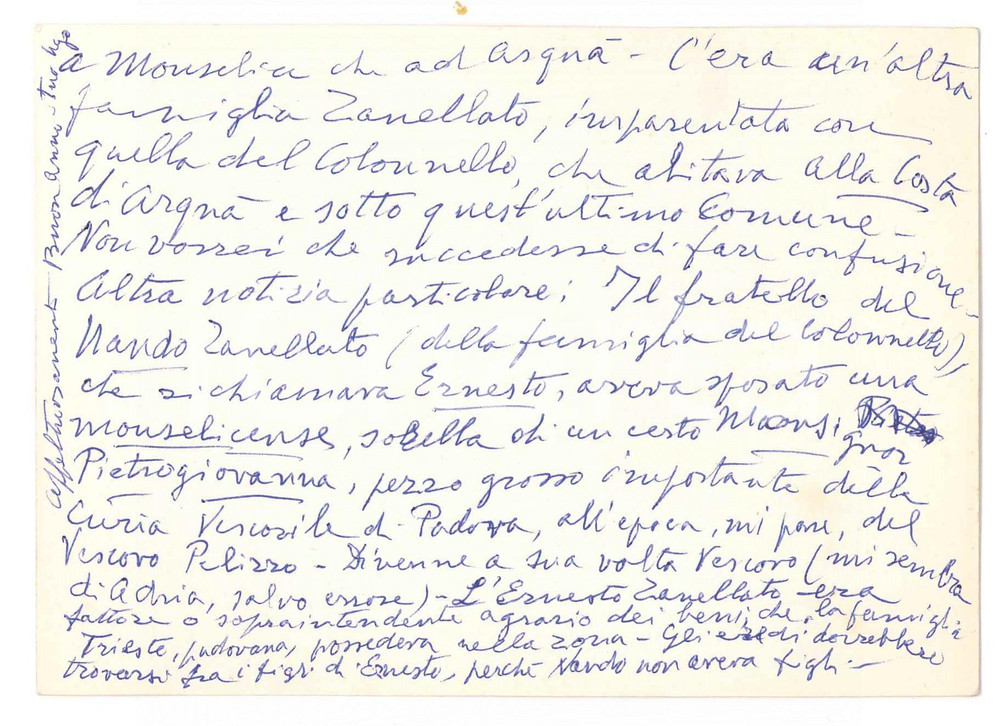 a Monselice che ad Arquà - C'era un'altra
famiglia Zanellato, imparentata con
quella del Colonnello, che abitava alla Costa
di Arquà e sotto quest'ultimo Comune -
Non vorrei che succedesse di fare confusione -
Altra notizia particolare: Il fratello del
Nando Zanellato (della famiglia del Colonnello),
che si chiamava Ernesto, aveva sposato una
monselicense, sorella di un certo Monsi
gnor
Pietrogiovanna, pezzo grosso importante della
Curia Vescovile di Padova, all'epoca, mi pare, del
Vescovo Pelizzo - Divenne a sua volta Vescovo (mi sembra
di Adria, salvo errore) - L'Ernesto Zanellato era
fattore o sopraintendente agrario dei beni che la famiglia
Trieste, padovana, possedeva nella zona - Gli eredi dovrebbero
trovarsi fra i figli di Ernesto, perchè Nando non aveva figli -
affettuosamente Buon Anno - tuo Ugo